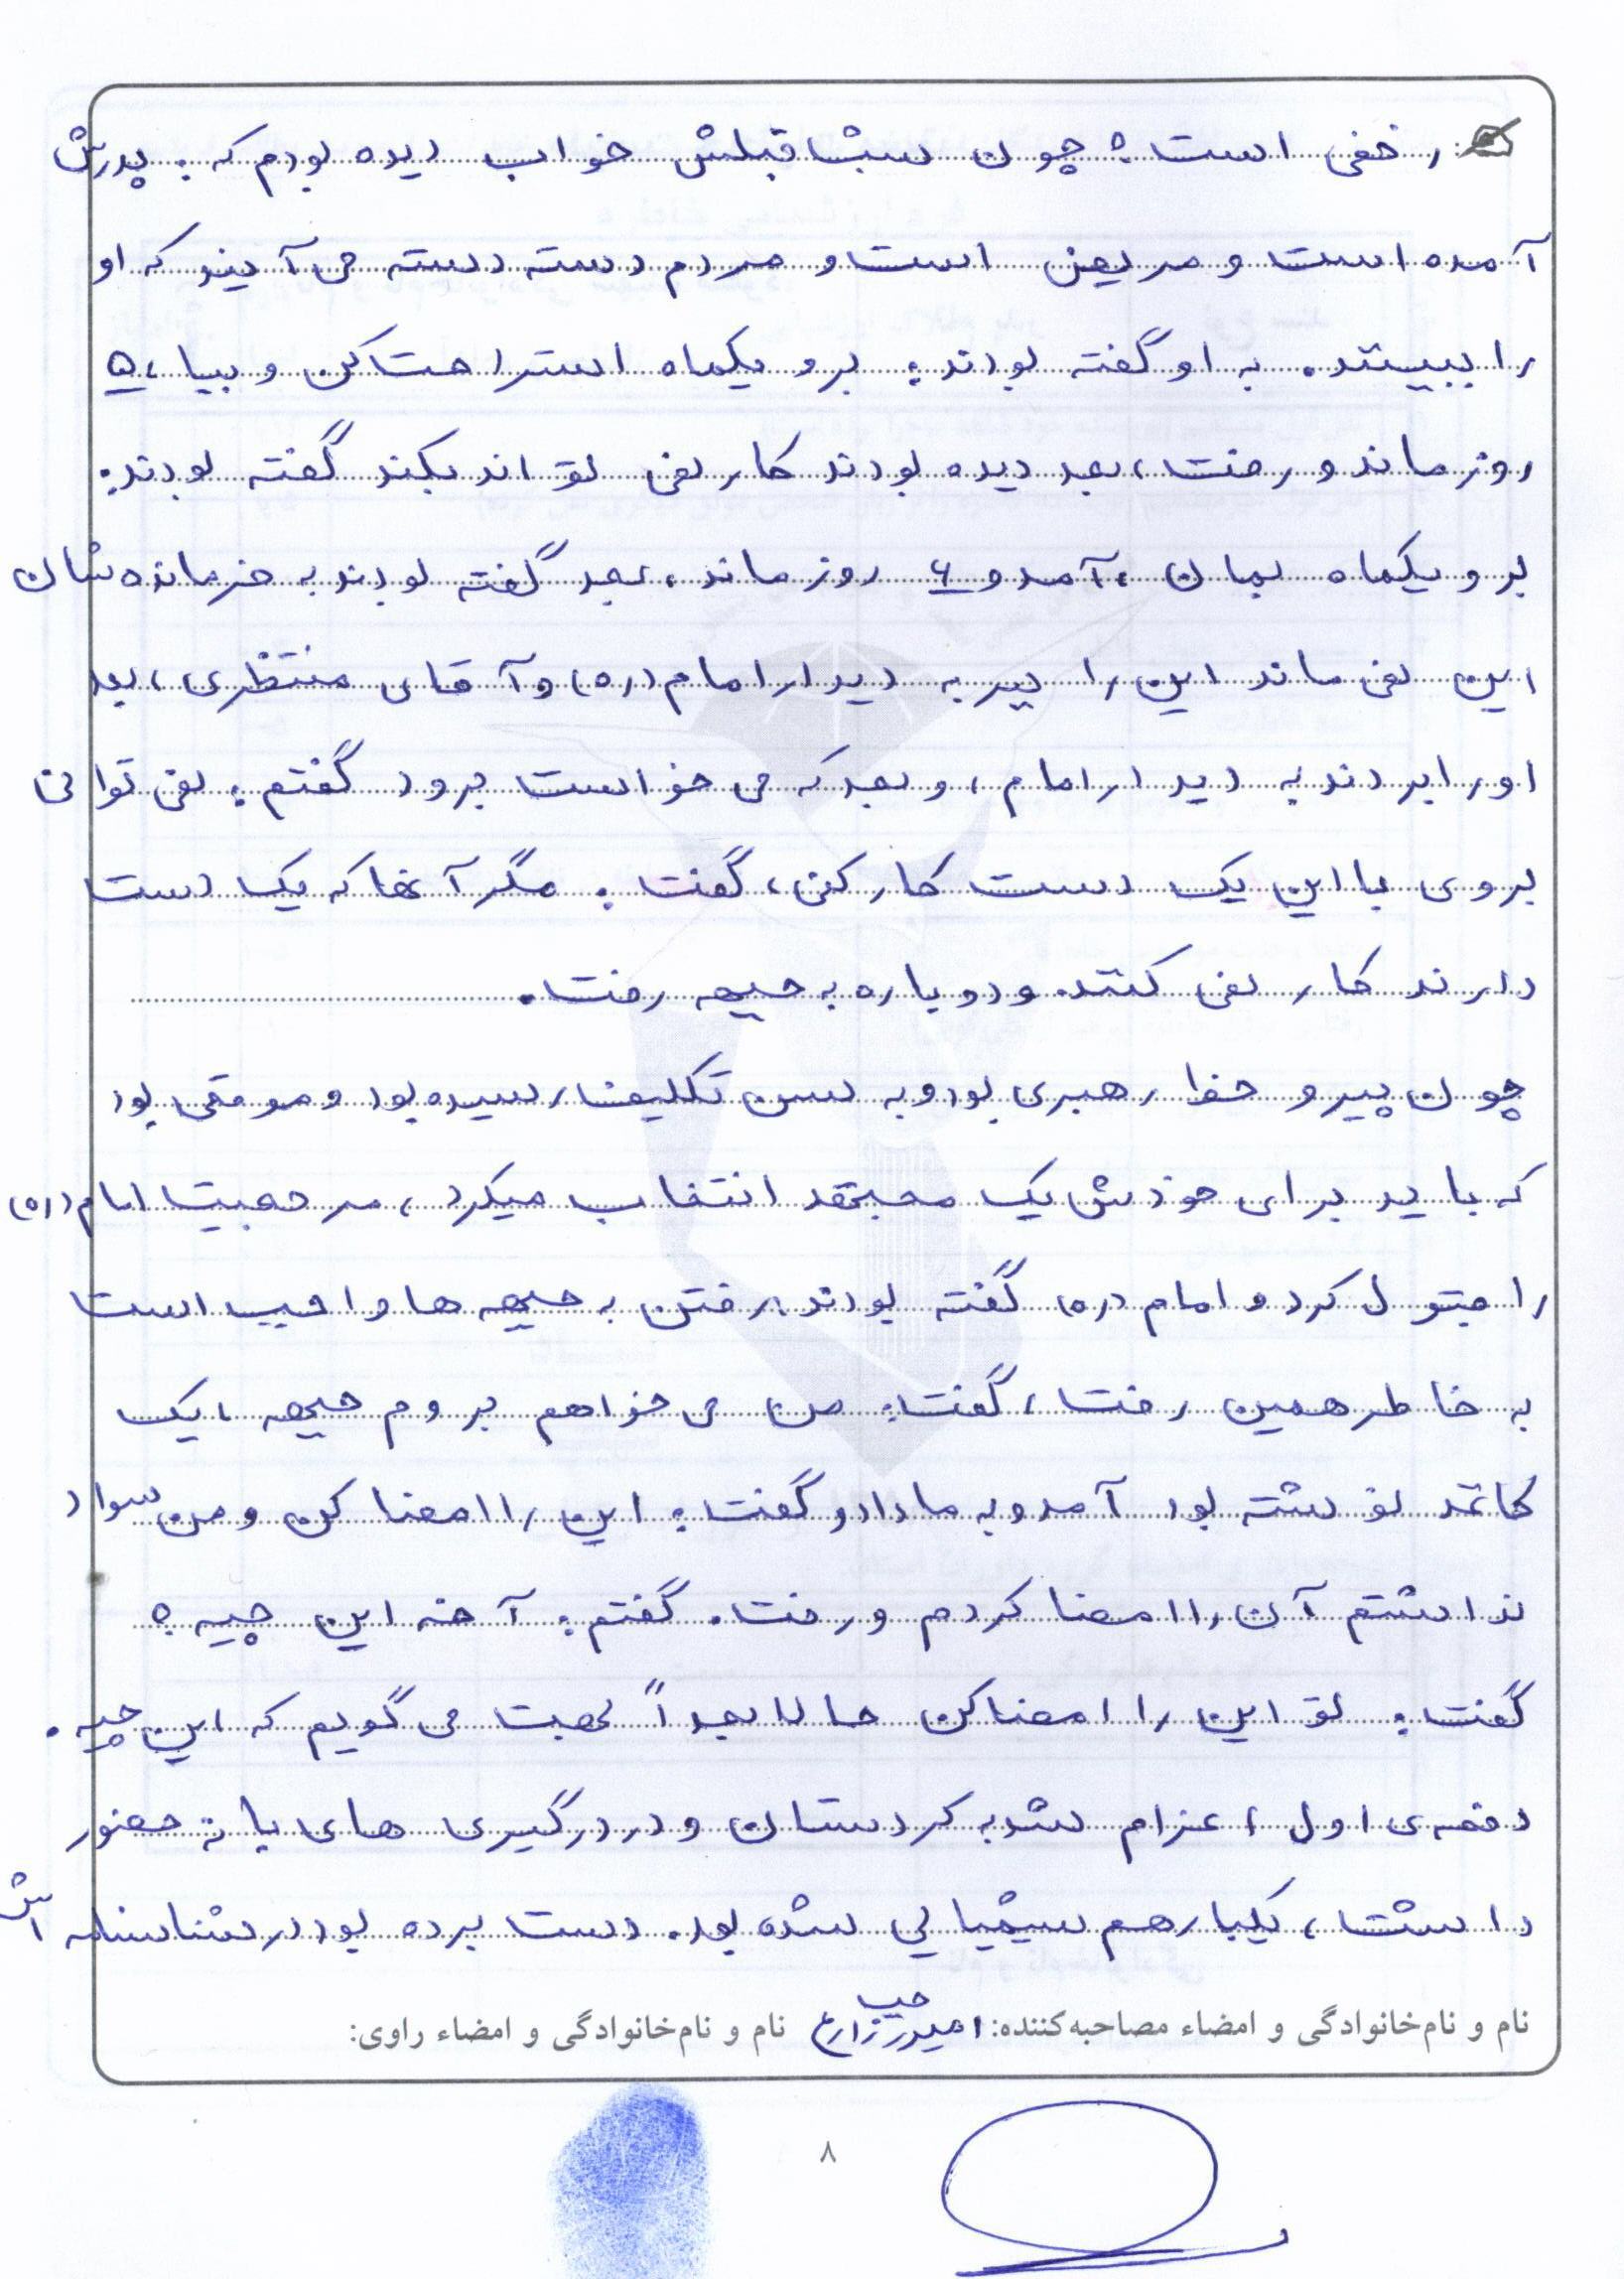 زخمی است؟ چون شب قبلش خواب دیده بودم که: پدرش
آمده است و مریض است و مردم دسته دسته می آیند که او
را ببینند. به او گفته بودند: برو یکماه استراحت کن و بیا، ۵
روز ماند و رفت، بعد دیده بودند کار نمی تواند بکند گفته بودند:
برو یکماه بمان، آمد و ۶ روز ماند، بعد گفته بودند به فرمانده شان
این نمی ماند این را ببر به دیدار امام (ره) و آقای منتظری، بعد
او را بردند به دیدار امام، و بعد که می خواست برود گفتم: نمی توانی
بروی با این یک دست کار کنی، گفت: مگر آنها که یک دست
دارند کار نمی کنند. و دوباره به جبهه رفت.
چون پیرو خط رهبری بود و به سن تکلیف رسیده بود و موقعی بود
که باید برای خودش یک مجتهد انتخاب میکرد، مرجعیت امام (ره)
را قبول کرد و امام (ره) گفته بودند: رفتن به جبهه ها واجب است
به خاطر همین رفت، گفت: من می خواهم بروم جبهه، یک
کاغذ نوشته بود آمد و به ما داد و گفت: این را امضا کن و من سواد
نداشتم آن را امضا کردم و رفت. گفتم: آخه این چیه؟
گفت: تو این را امضا کن حالا بعداً بهت می گویم که این چیه.
دفعه ی اول، اعزام شد به کردستان و در درگیری های بانه حضور
داشت، یکبار هم شیمیایی شده بود. دست برده بود در شناسنامه اش
نام و نام‌خانوادگی و امضاء مصاحبه‌کننده: نام و نام‌خانوادگی و امضاء راوی:
۸